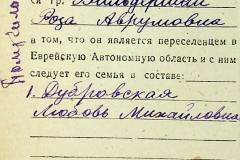 ся гр.
Роза Аврумовна
в том, что он является переселенцем в
Еврейскую Автономную область и с ним
следует его семья в составе:
1. Дубровская
Любовь Михайловна